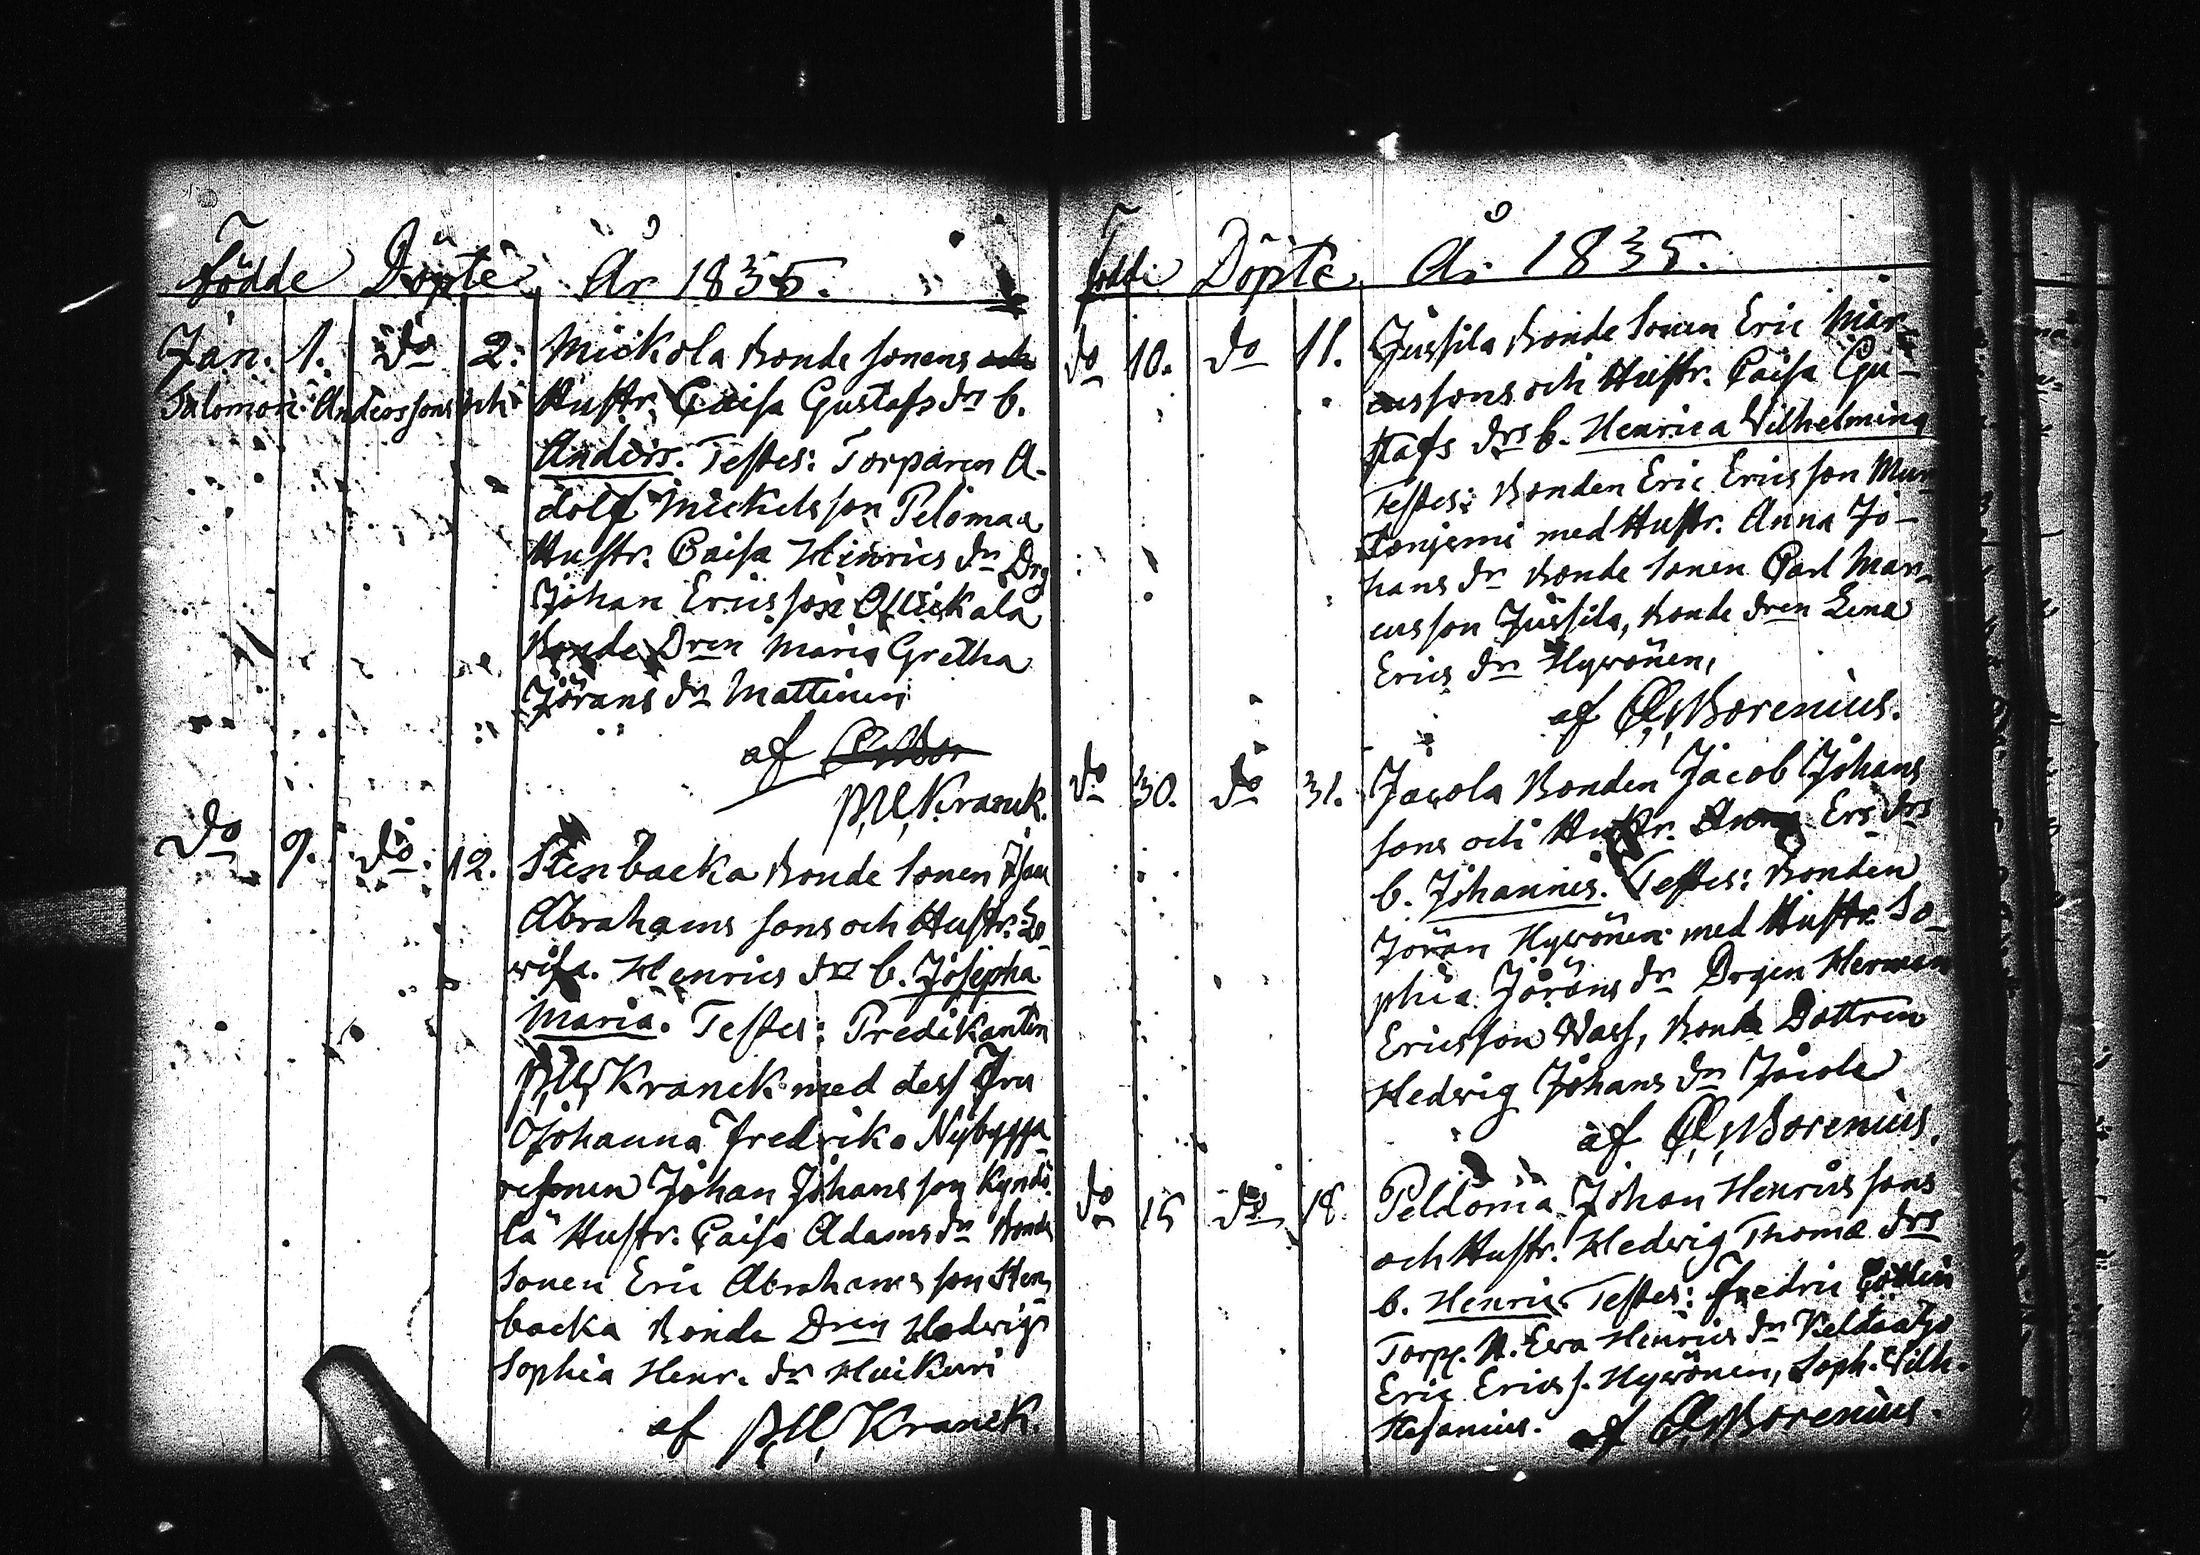 Födde Döpte År 1835.
Jan. 1. do 2. Mickola Bonde sonens och
Salomon Anderssons och Hustr. Caisa Gustafs dr b.
Anders. Testes: Torparen A-
dolf Mickelsson Pelomaa
Hustr. Caisa Hinrics dr Drg
Johan Ericsson Ollikala
Bonde Dren Maria Gretha
Jörans dr Mattinen
af
P. U. Kranck.
do 9. do. 12. Stenbacka Bonde Sonen Johan
Abrahams sons och Hustr. Lo-
visa Henrics drs b. Josepha
Maria. Testes: Predikanten
P. U. Kranck med dess Fru
Johanna Fredrika Nybygga-
resonen Johan Johansson Kyndö
lä Hustr. Caisa Adams dr Bonde
Sonen Eric Abrahamsson Sten-
backa Bonde Dren Hedwig
Sophia Henr. dr Huikuri
af P. U. Kranck.
Födde Döpte År 1835.
do 10. do 11. Jussila Bonde Sonen Eric Mar-
cussons och Hustr. Caisa Gu-
stafs drs b. Henrica Wilhelmina
Testes: Bonden Eric Ericsson Mur-
toniemi med Hustr. Anna Jo-
hans dr Bonde Sonen Carl Mar-
cusson Jussila, Bonde dren Lena
Erics dr Hyvönen,
af C. W. Borenius.
do 30. do 31. Jacola Bonden Jacob Johans
sons och Hustr. Anna Ers drs
b. Johannes. Testes: Bonden
Jöran Hyvönen med Hustr. So-
phia Jörans dr Drgen Herman
Ericsson Wass, Bonde Dottren
Hedwig Johans dr Jacola
af C. W. Borenius.
do 15 do 18. Peldoma Johan Henrics sons
och Hustr. Hedwig Thomæ drs
b. Henric. Testes: Fredric
Torp. H. Ewa Henrics dr Keltaatjo
Eric Erics s. Hyvönen, Soph. Wilh.
Hesanius. af C. W. Borenius.